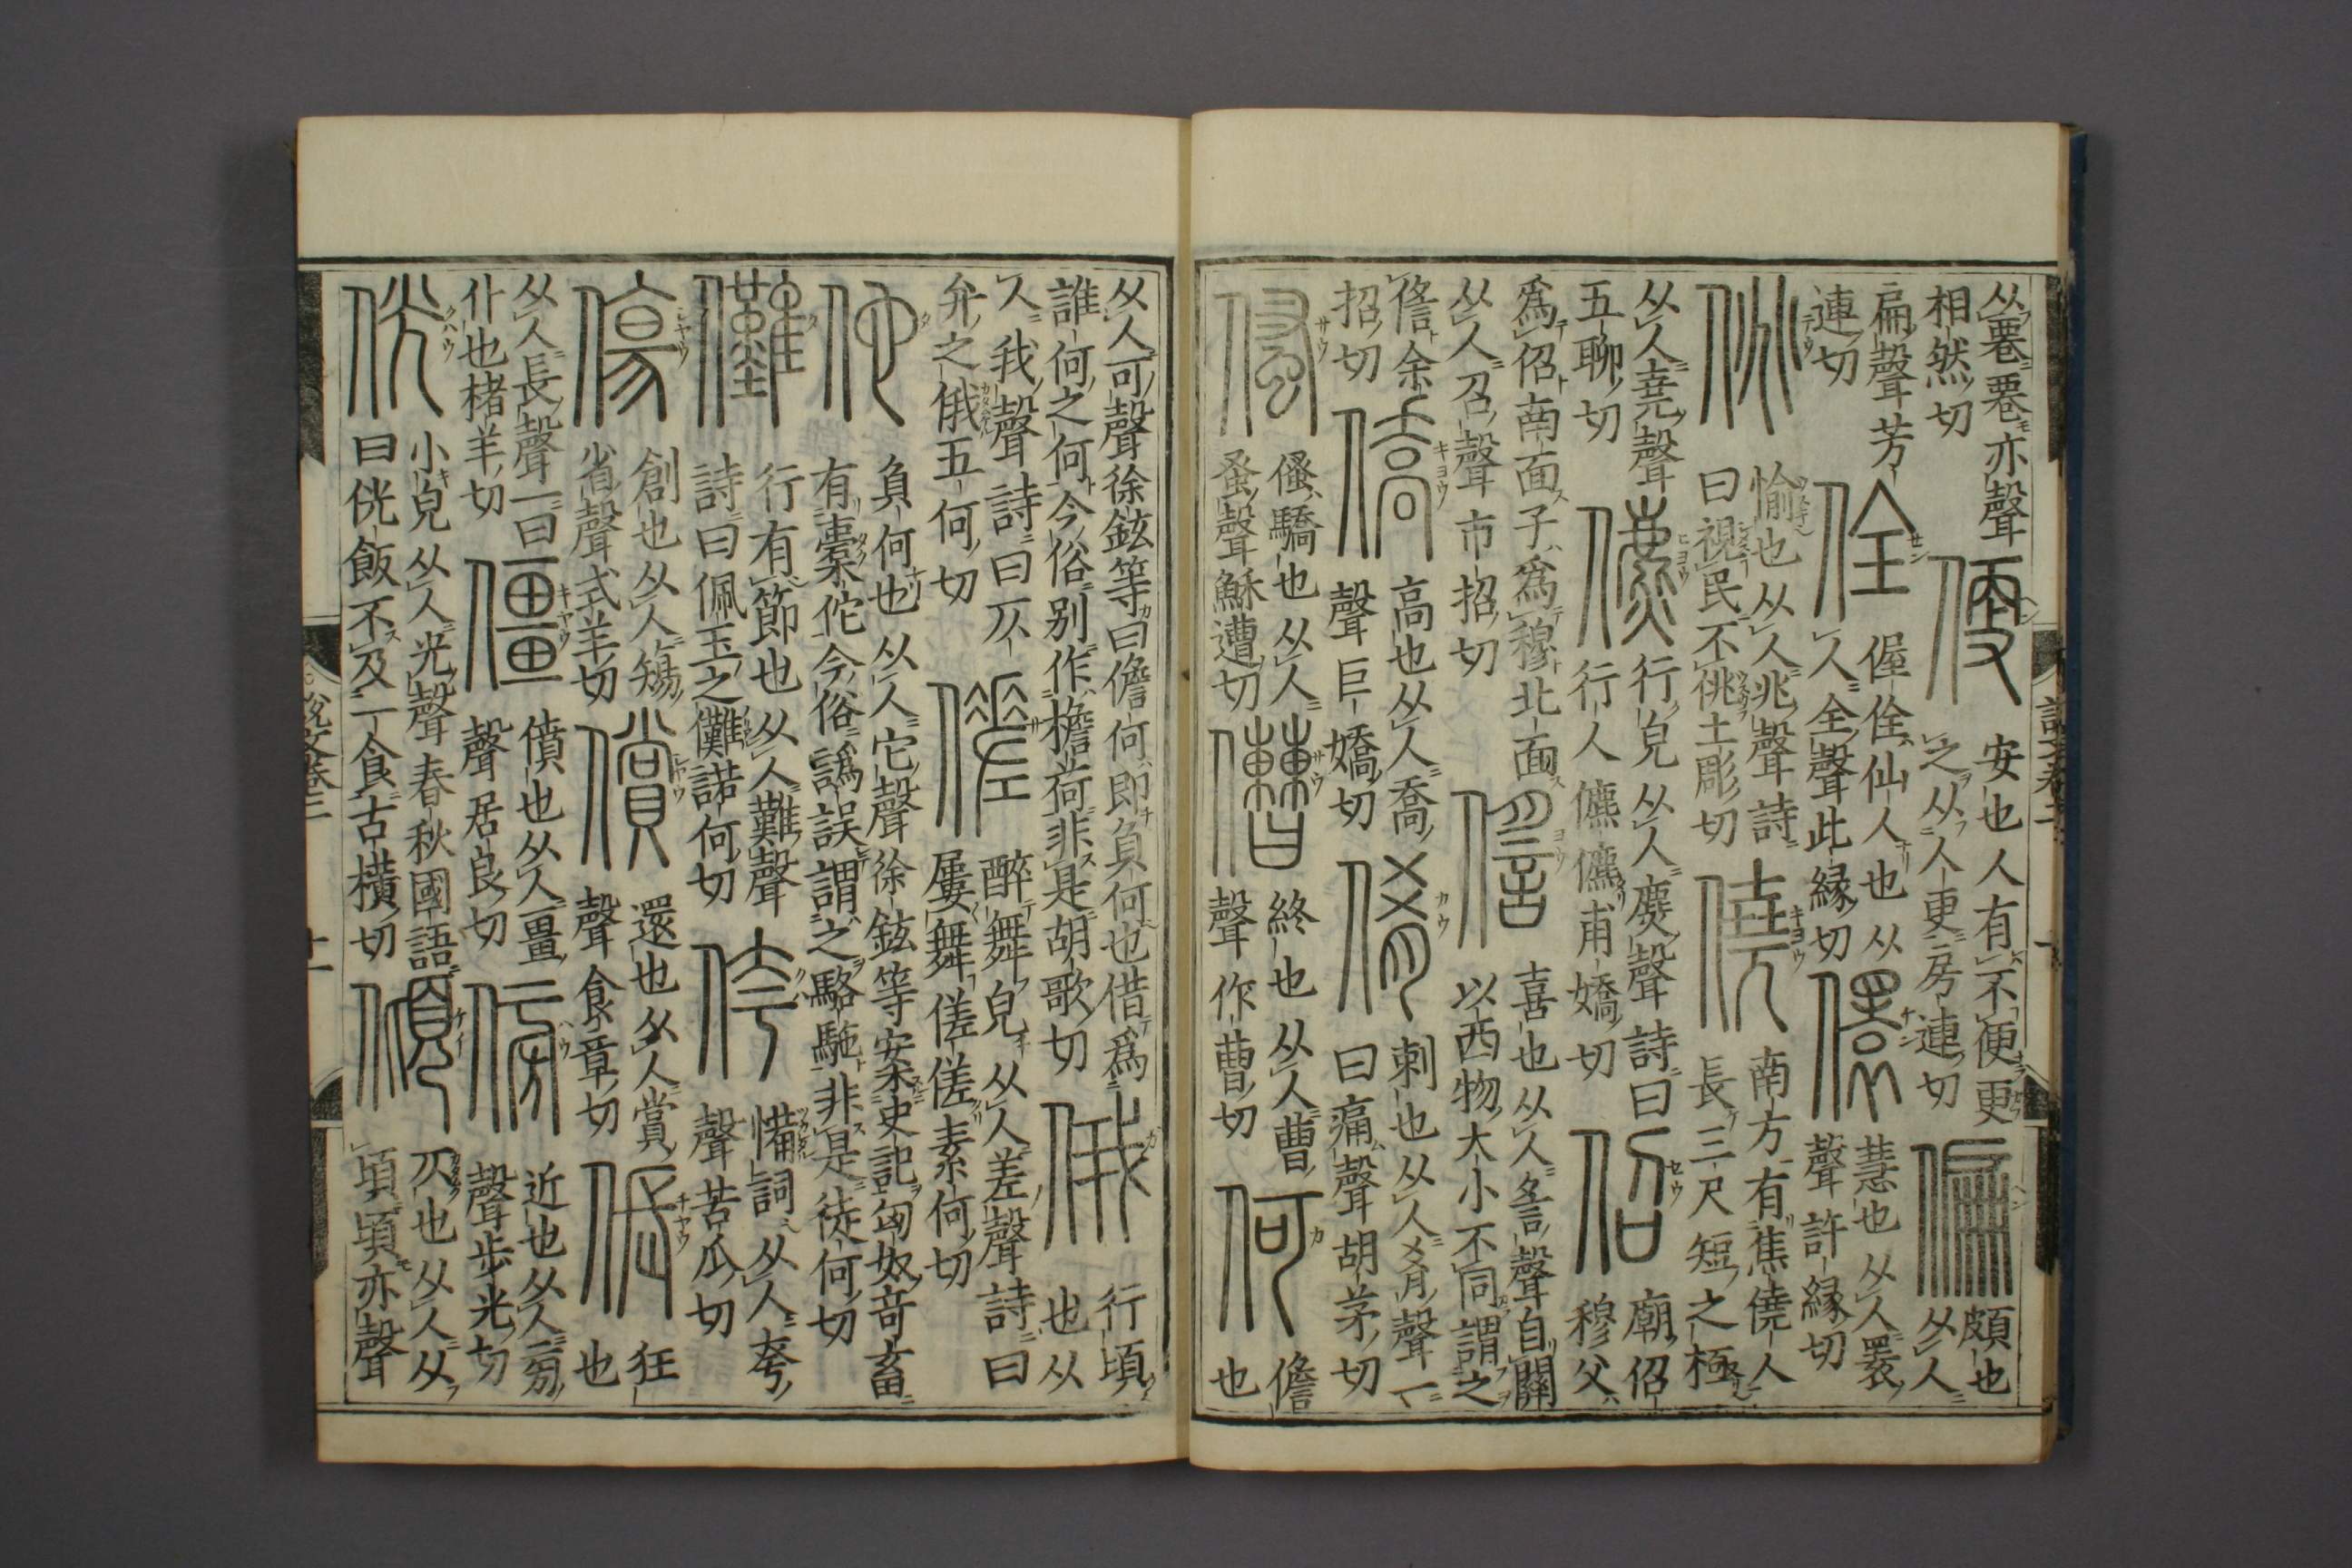 从䙴䙴亦聲
相然切
便
安也人有不便更
之从人更房連切
偏
頗也
从人
扁聲芳
連切
佺
偓佺仙人也从
人全聲此縁切
儇
慧也从人瞏
聲許縁切
佻
愉也从人兆聲詩
曰視民不佻土彫切
僥
南方有焦僥人
長三尺短之極
从人堯聲
五聊切
儦
行皃从人麃聲詩曰
行人儦儦甫嬌切
佋
廟佋
穆父
爲佋南面子爲穆北面
从人召聲市招切
喜也从人䚻聲自關
以西物大小不同謂之
余
招切
僑
高也从人喬
聲巨嬌切
倄
刺也从人肴聲一
曰痛聲胡茅切
驕也从人
蚤聲穌遭切
傮
終也从人曹
聲作曹切
何
儋
也
从人可聲徐鉉等曰儋何即負何也借爲
誰何之何今俗别作擔荷非是胡歌切
俄
行頃
也从
人我聲詩曰仄
弁之俄五何切
傞
醉舞皃从人差聲詩曰
屢舞傞傞素何切
佗
負何也从人它聲徐鉉等安案史記匈奴竒畜
有橐佗今俗譌誤謂之駱駞非是徒何切
儺
行有節也从人難聲
詩曰佩玉之儺諾何切
侉
憊詞从人夸
聲苦瓜切
傷
創也从人𥏻
省聲式羊切
償
還也从人賞
聲食章切
倀
狂
也
从人長聲一曰
仆也楮羊切
僵
僨也从人畺
聲居良切
傍
近也从人㫄
聲步光切
侊
小皃从人光聲春秋國語
曰侊飯不及一食古横切
傾
仄也从人从
頃頃亦聲
説文卷三
十一